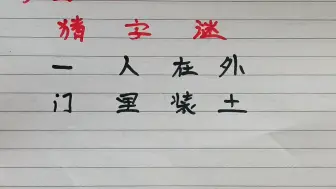 猜字谜
一人在外
门里装土